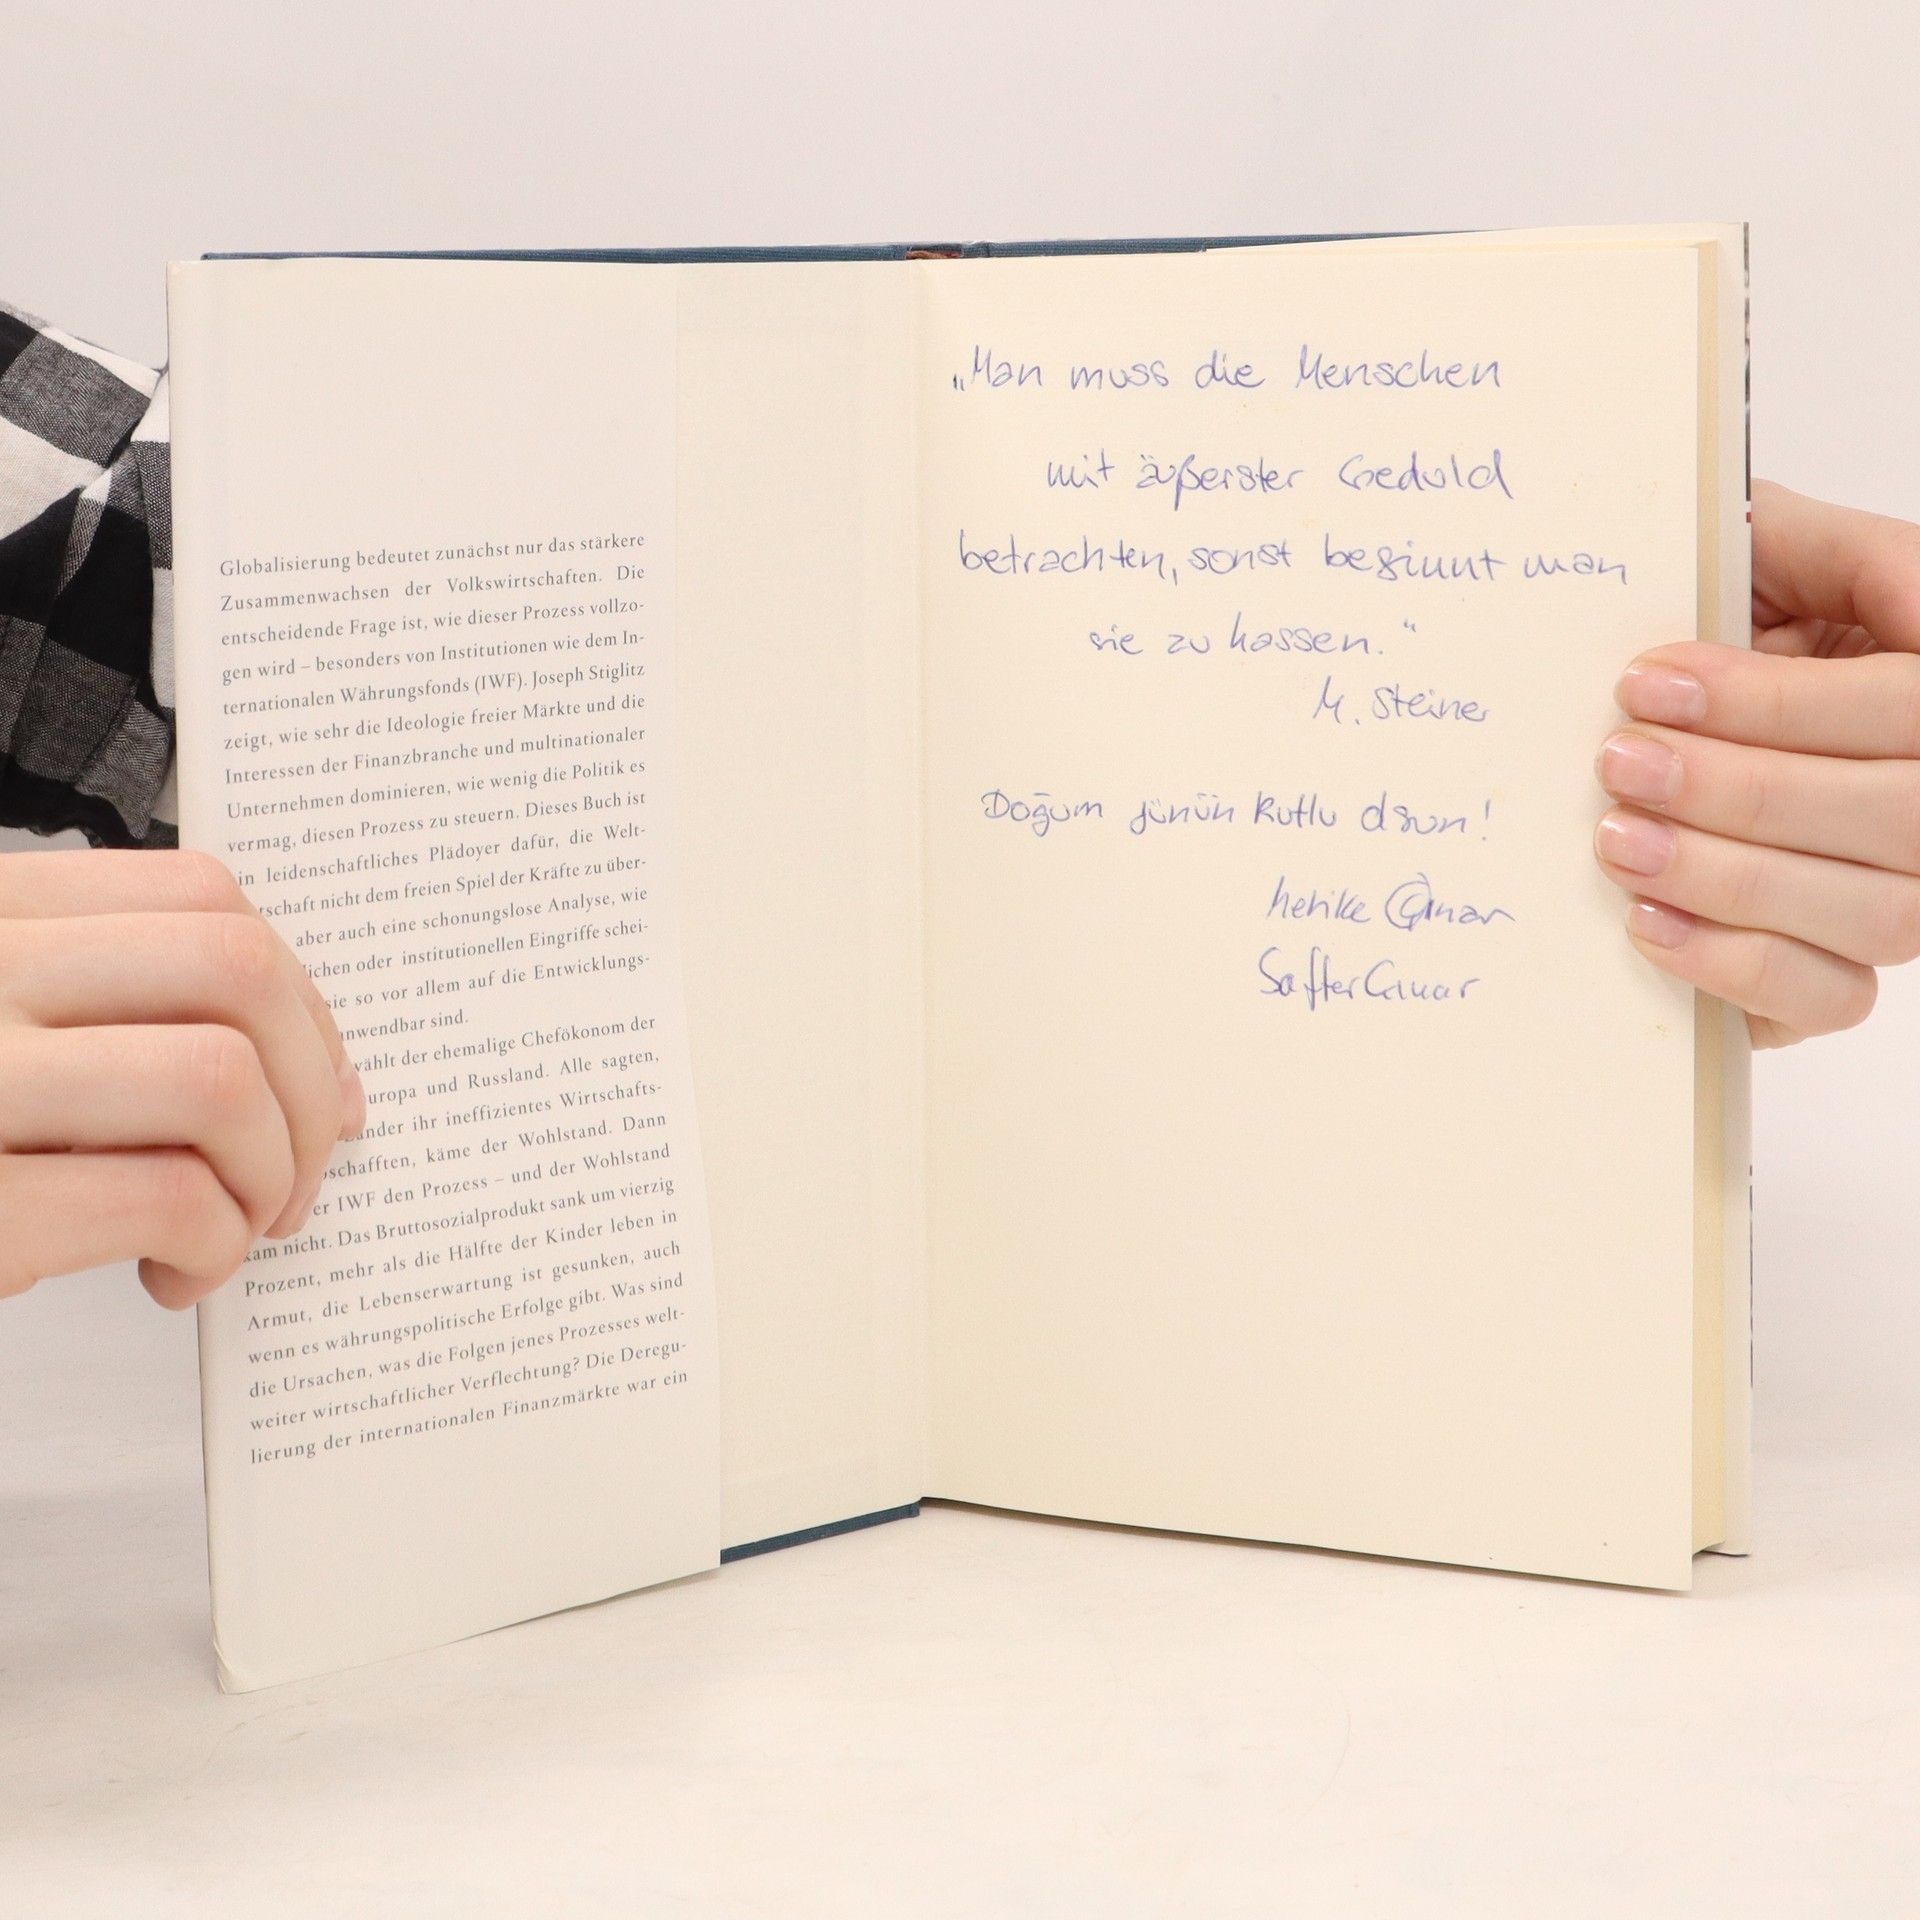 Globalisierung bedeutet zunächst nur das stärkere
Zusammenwachsen der Volkswirtschaften. Die
entscheidende Frage ist, wie dieser Prozess vollzo-
gen wird – besonders von Institutionen wie dem In-
ternationalen Währungsfonds (IWF). Joseph Stiglitz
zeigt, wie sehr die Ideologie freier Märkte und die
Interessen der Finanzbranche und multinationaler
Unternehmen dominieren, wie wenig die Politik es
vermag, diesen Prozess zu steuern. Dieses Buch ist
in leidenschaftliches Plädoyer dafür, die Welt-
tschaft nicht dem freien Spiel der Kräfte zu über-
aber auch eine schonungslose Analyse, wie
lichen oder institutionellen Eingriffe schei-
sie so vor allem auf die Entwicklungs-
anwendbar sind.
wählt der ehemalige Chefökonom der
uropa und Russland. Alle sagten,
änder ihr ineffizientes Wirtschafts-
schafften, käme der Wohlstand. Dann
er IWF den Prozess – und der Wohlstand
kam nicht. Das Bruttosozialprodukt sank um vierzig
Prozent, mehr als die Hälfte der Kinder leben in
Armut, die Lebenserwartung ist gesunken, auch
wenn es währungspolitische Erfolge gibt. Was sind
die Ursachen, was die Folgen jenes Prozesses welt-
weiter wirtschaftlicher Verflechtung? Die Deregu-
lierung der internationalen Finanzmärkte war ein
„Man muss die Menschen
mit äußerster Geduld
betrachten, sonst beginnt man
sie zu hassen."
M. Steiner
Doğum günün kutlu olsun!
Safter Çınar